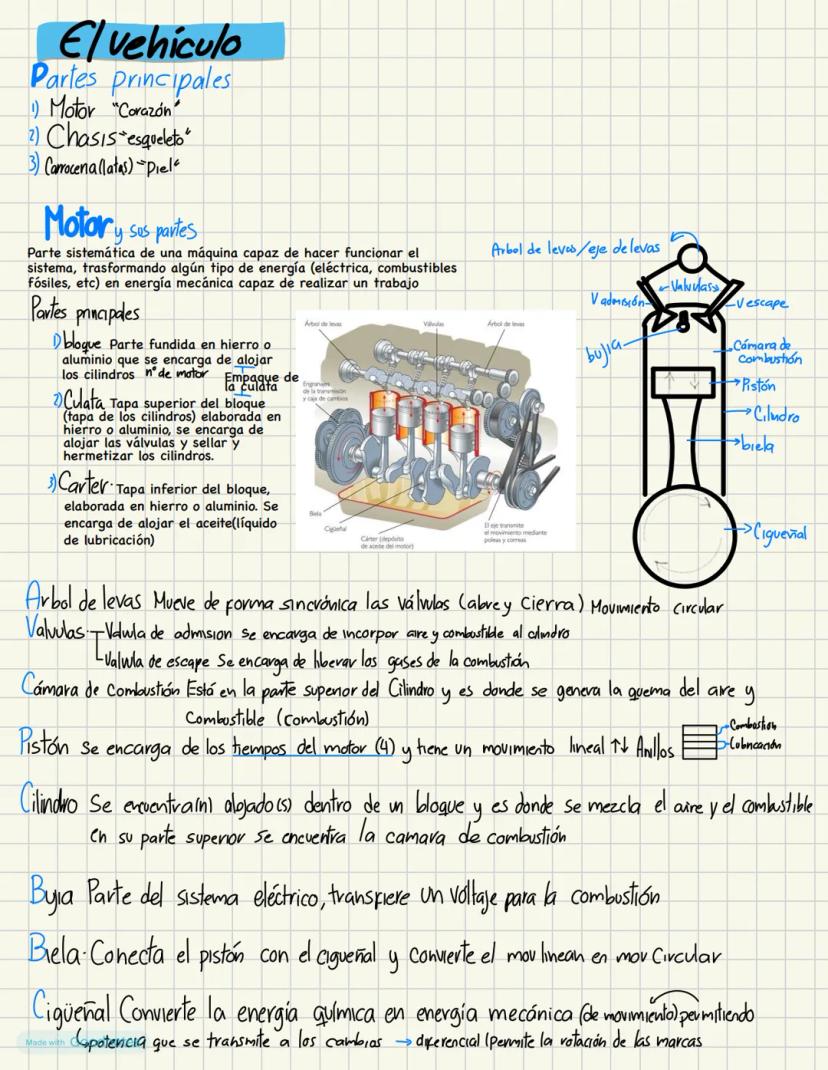 El vehículo
Partes principales
1) Motor "Corazón"
2) Chasis "esqueleto"
3) Carrocería (latas) "Piel"
Motor y sus partes
Parte sistemática de una máquina capaz de hacer funcionar el
sistema, trasformando algún tipo de energía (eléctrica, combustibles
fósiles, etc) en energía mecánica capaz de realizar un trabajo
Partes principales
1) bloque Parte fundida en hierro o
aluminio que se encarga de alojar
los cilindros nº de motor
Empaque de
la culata
2) Culata Tapa superior del bloque
(tapa de los cilindros) elaborada en
hierro o aluminio, se encarga de
alojar las válvulas y sellar y
hermetizar los cilindros.
3) Carter. Tapa inferior del bloque,
elaborada en hierro o aluminio. Se
encarga de alojar el aceite(líquido
de lubricación)
Árbol de levas
Válvulas
Árbol de levas
Engranajes
de la transmisión
y caja de cambios
Biela
Cigüeñal
Cárter (depósito
de aceite del motor)
El eje transmite
el movimiento mediante
poleas y correas
Arbol de levas/eje de levas
Valvulas
V admisión
V escape
bujia
Cámara de
combustión
Pistón
Cilindro
biela
Cigueñal
Arbol de levas Mueve de forma sincrónica las válvulas (abre y cierra) Movimiento circular
Valvulas Valvula de admision Se encarga de incorpor aire y combustible al cilindro
Valvula de escape Se encarga de liberar los gases de la combustión
Cámara de Combustión Está en la parte superior del Cilindro y es donde se genera la quema del aire y
Combustible (combustión)
Pistón Se encarga de los tiempos del motor (4) y tiene un movimiento lineal ↑↓ Anillos
Combustion
Lubricación
Cilindro Se encuentra(n) alojado(s) dentro de un bloque y es donde se mezcla el aire y el combustible
en su parte superior se encuentra la camara de combustión
Bujia Parte del sistema eléctrico, transfiere un voltaje para la combustión
Biela. Conecta el pistón con el cigueñal y convierte el mov linean en mov Circular
Cigüeñal Convierte la energía química en energía mecánica (de movimiento) permitiendo
potencia que se transmite a los cambios → diferencial (permite la rotación de las marcas
Made with